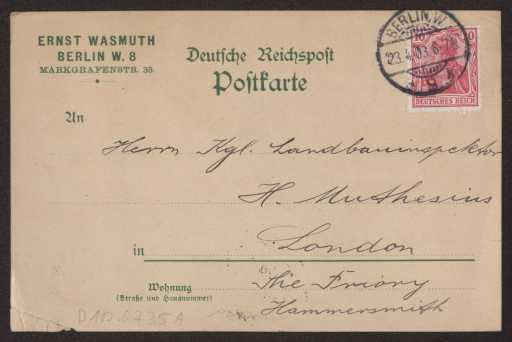 ERNST WASMUTH
BERLIN W. 8
MARKGRAFENSTR. 35.
Deutsche Reichspost
Postkarte
BERLIN, W.
23.4.03.6-7N.
* 9 *
10
DEUTSCHES REICH
An
Herrn Kgl. Landbauinspektor
H. Muthesius
in London
Wohnung The Priory
(Straße und Hausnummer)
Hammersmith
D 102-6735 A